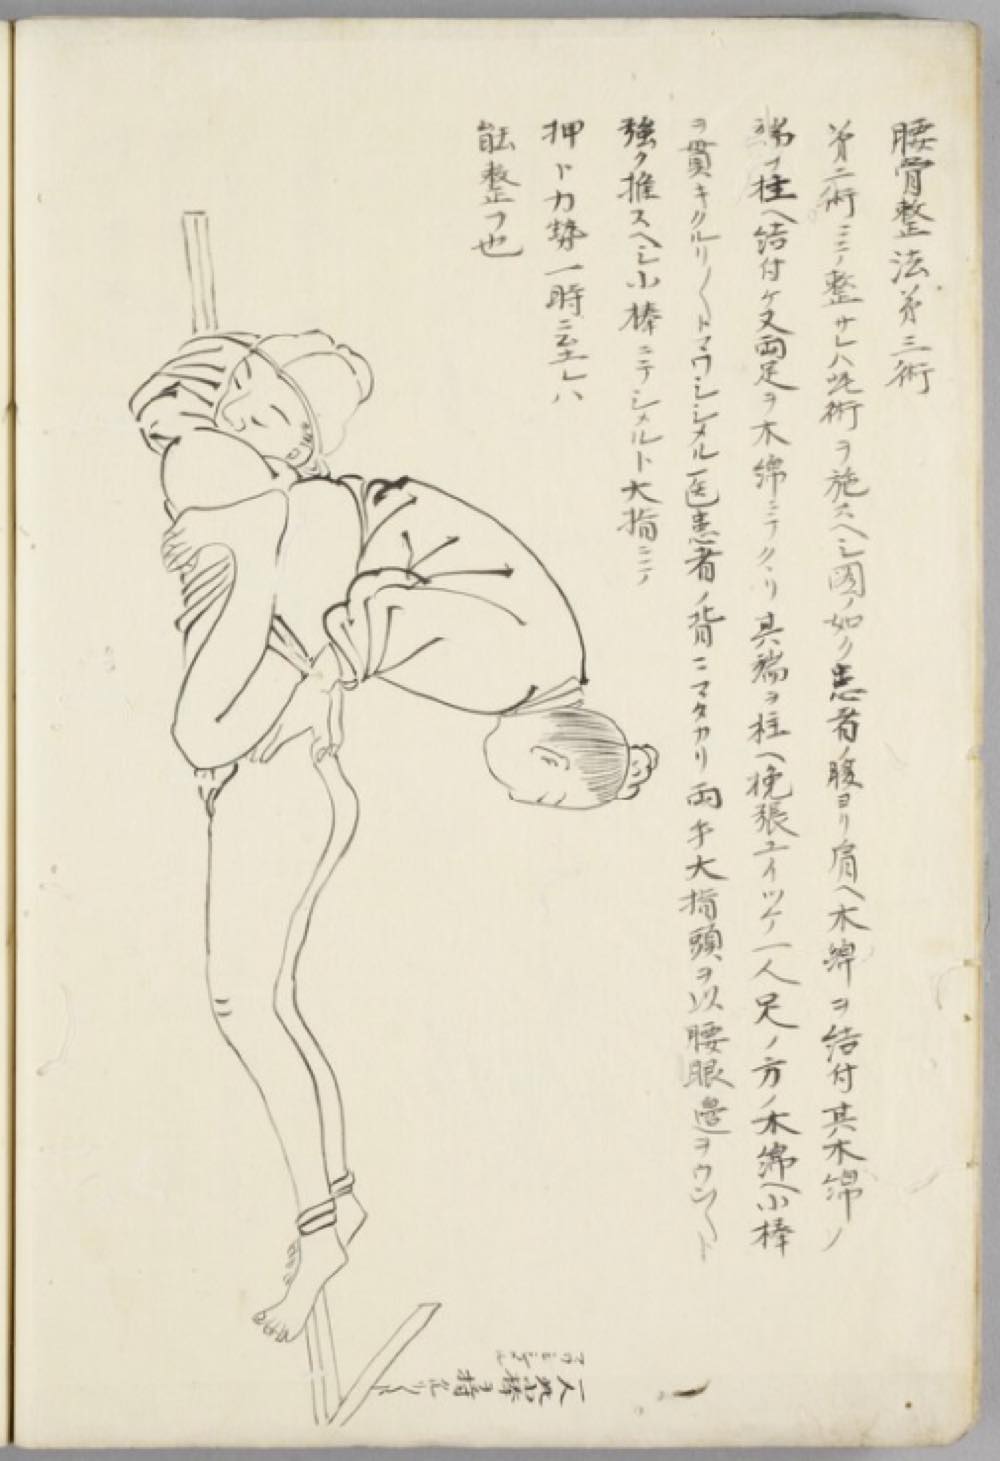 腰骨整法第三術
第二術ニテ整サレハ此術ヲ施スヘシ図ノ如ク患者ノ腹ヨリ肩ヘ木綿ヲ結付其木綿ノ
端ヲ柱ヘ結付ケ又両足ヲ木綿ニテクヽリ其端ヲ柱ヘ挽張ユイツケ一人足ノ方ノ木綿ヘ小棒
ヲ貫キクルリ〳〵トマワシシメル医患者ノ背ニマタカリ両手大指頭ヲ以腰眼辺ヲウン〳〵ト
強ク推スヘシ小棒ニテシメルト大指ニテ
押ト力勢一時ニ至レハ
能整フ也
一人此小棒ヲ